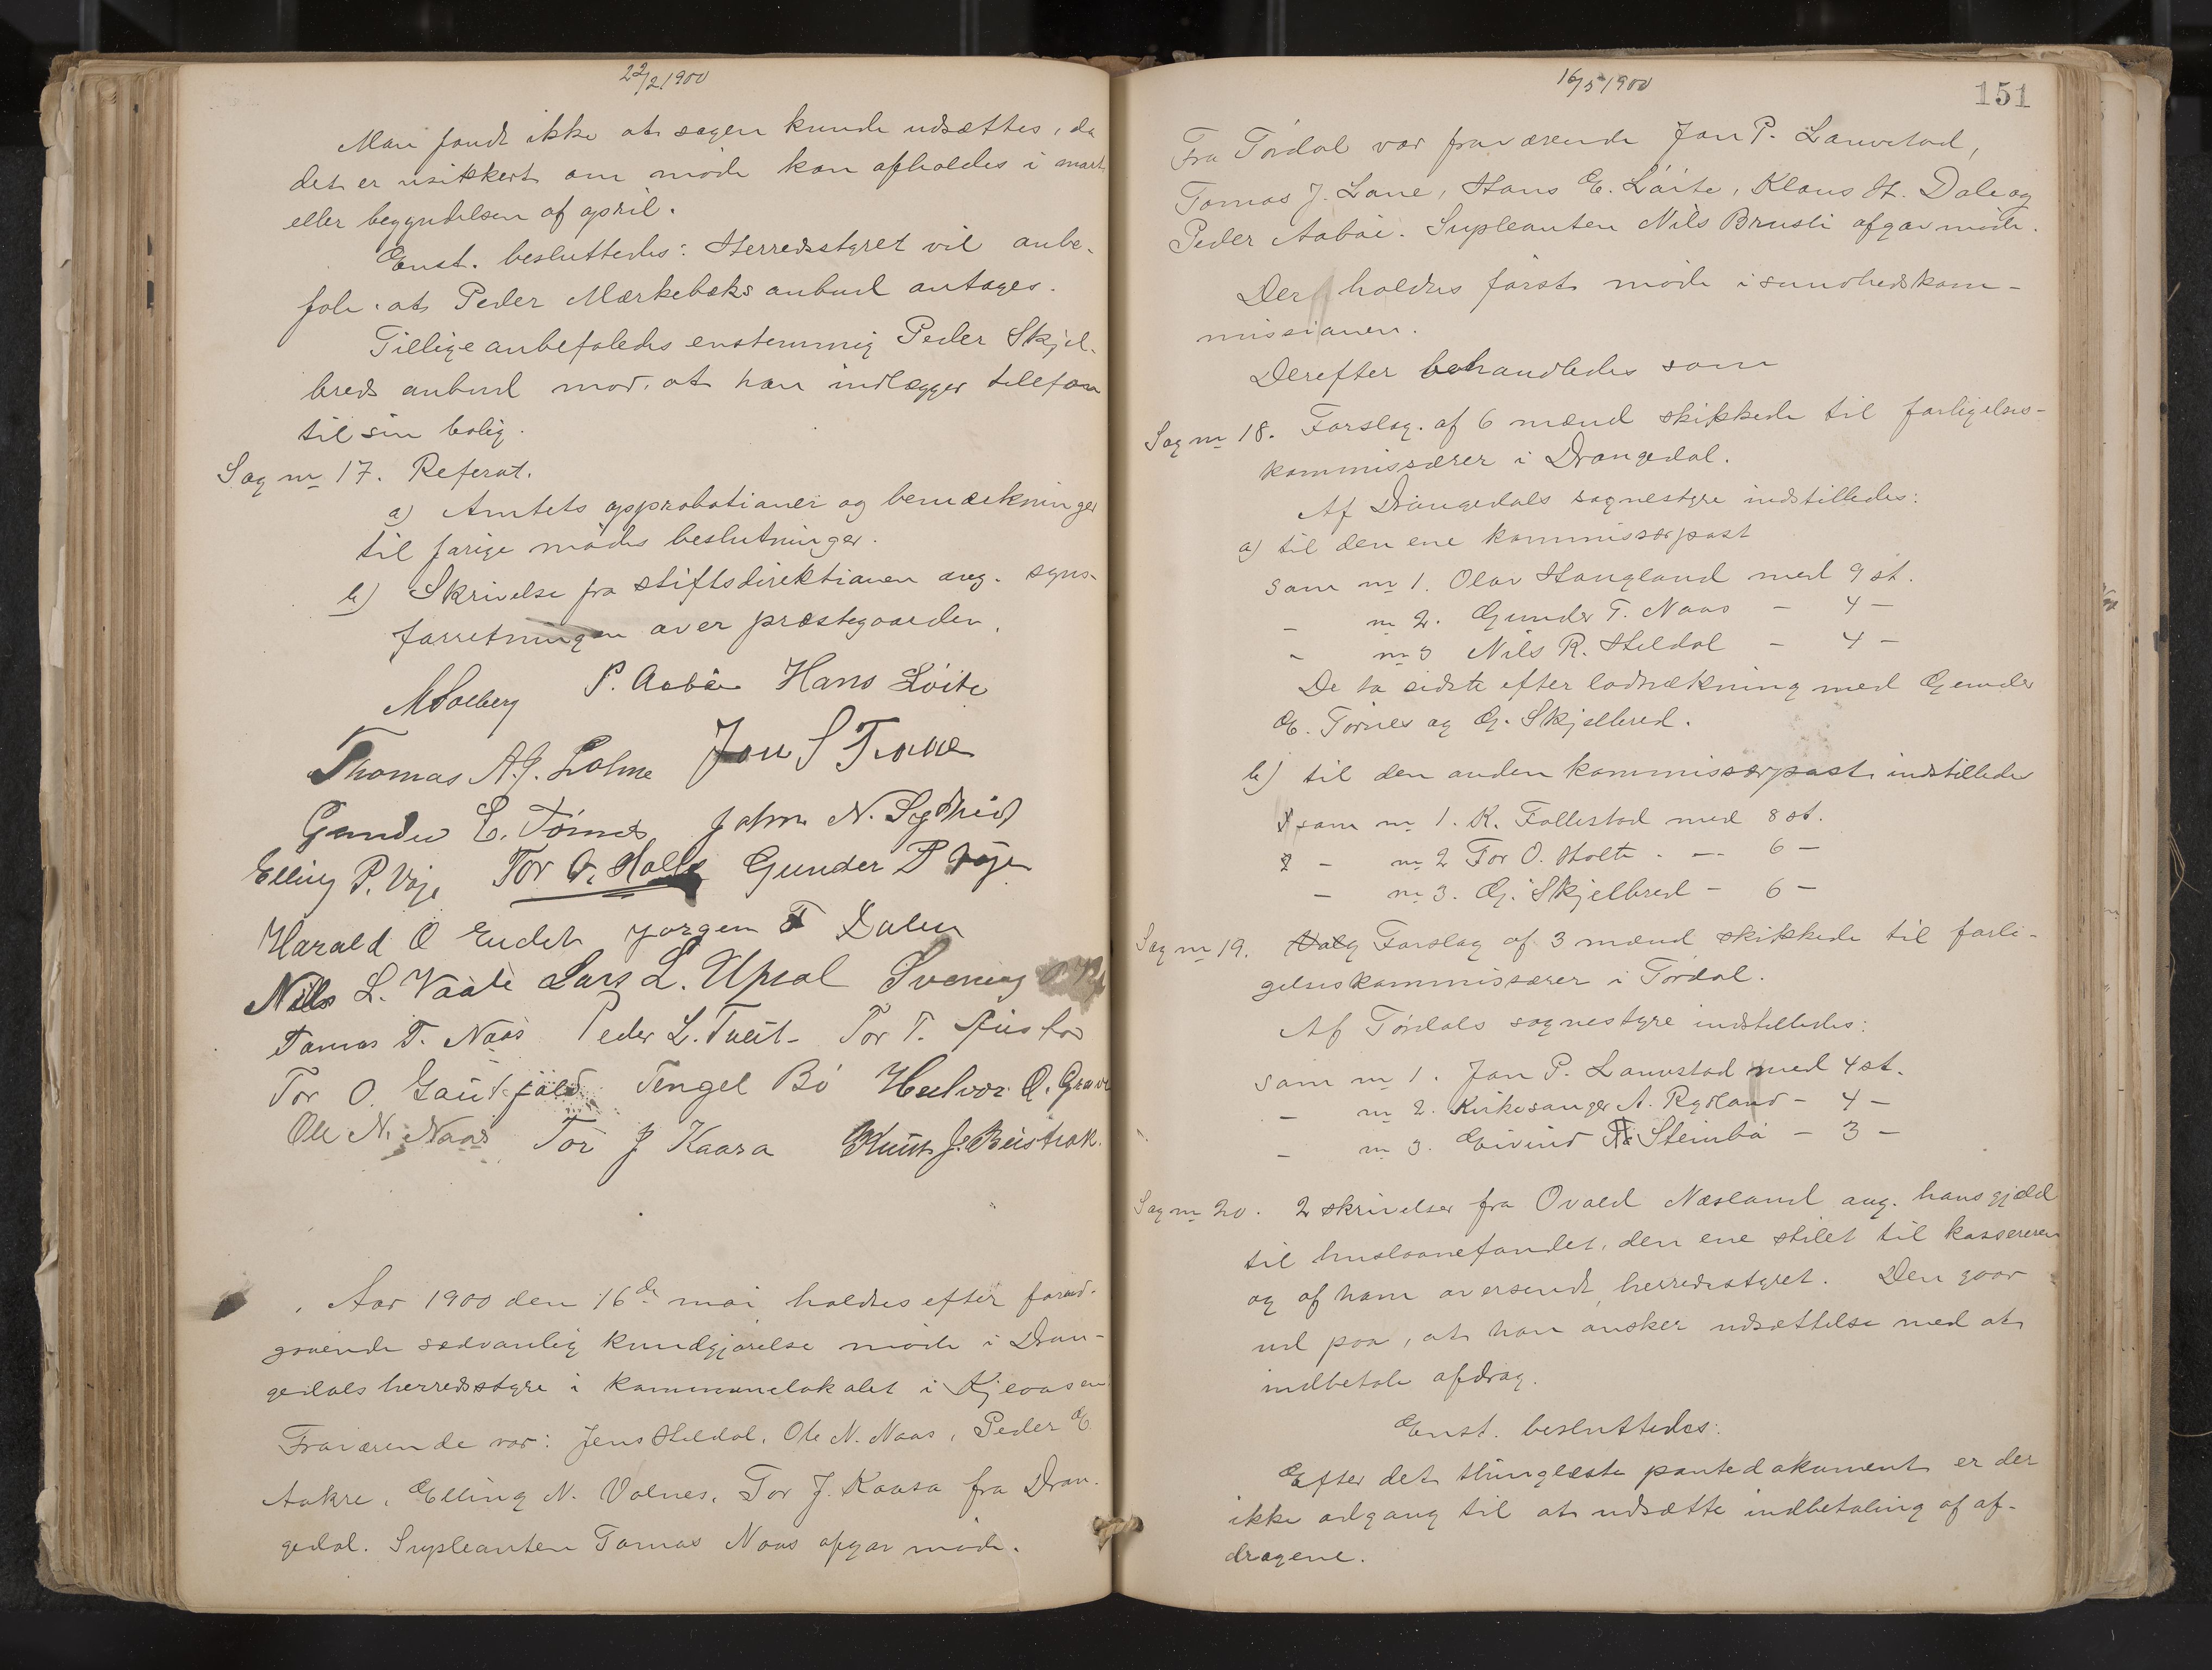 22/2 1900
Man fandt ikke at sagen kunde udsættes, da
det er usikkert om møde kan afholdes i mart
eller begyndelsen af april.
Enst. besluttedes: Herredsstyret vil anbe-
fale at Peder Mærkebæks anbud antages.
Tillige anbefaledes enstemmig Peder Skjel-
breds anbud mod, at han indlægger telefon
til sin bolig.
Sag nr 17. Referat.
a) Amtets approbationer og bemærkninger
til forige mødes beslutninger.
b) Skrivelse fra stiftsdirektionen ang. syns-
forretningen over præstegaarden.
M Solberg P. Aabø Hans Løite
Thomas A.J. Jon S
Gunder E. Tørnes John N.
Elling P. Voje Tor O. Holte Gunder P Voje
Harald O Endet Jørgen T Dalen
Nills L. Vaale Lars L. Upsal Svening
Tamas T. Naas Peder L. Tveit Tor T.
Tor O. Gautefald Tengel Bø Halvor O. Grave
Ole N. Naas Tor J Kaasa Knut J. Beistrak.
Aar 1900 den 16de mai holdtes efter forud-
gaaende sedvanlig kundgjørelse møde i Dran-
gedals herredsstyre i kommunelokalet i Kjevaasen.
Fraværende var: Jens Heldal, Ole N. Naas, Peder E
Aakre, Elling N. Volnes, Tor J. Kaasa fra Dran-
gedal. Supleanten Tamas Naas afgav møde.
16/5 1900
151
Fra Tørdal var fraværende Jon P. Lauvstad,
Tomas J. Lane, Hans E. Løite, Klaus H. Dale og
Peder Aabøe. Supleanten Nils Brusli afgav møde.
Der holdtes først møde i sundhedskom-
missionen.
Derefter behandledes som
Sag nr 18. Forslag af 6 mænd skikkede til forligelses-
kommissærer i Drangedal.
Af Drangedals sognestyre indstilledes:
a) til den ene kommissærpost
som nr 1. Olav Haugland med 9 st.
- nr 2. Gunder T. Naas - 4 -
- nr 3 Nils R. Heldal - 4 -
De to sidste efter lodtrækning med Gunder
E. Tørnes og G. Skjelbred.
b) til den anden kommissærpost indstilledes
som nr 1. K. Follestad med 8 st.
- nr 2 Tor O. Holte - 6 -
- nr 3. G. Skjelbred - 6 -
Sag nr 19. Valg Forslag af 3 mænd skikkede til forli-
gelseskommissærer i Tørdal.
Af Tørdals sognestyre indstilledes:
som nr 1. Jon P. Lauvstad med 4 st.
- nr 2. Kirkesanger A. Rydland - 4 -
- nr 3. Eivind Steinbø - 3 -
Sag nr 20. 2 skrivelser fra Ovald Næsland ang. hans gjæld
til huslaanefondet, den ene stilet til kassereren
og af ham oversendt herredsstyret. Den gaar
ud paa, at han ønsker udsættelse med at
indbetale afdrag.
Enst. besluttedes:
Efter det thinglæste pantedokument er der
ikke adgang til at udsætte indbetaling af af-
dragene.